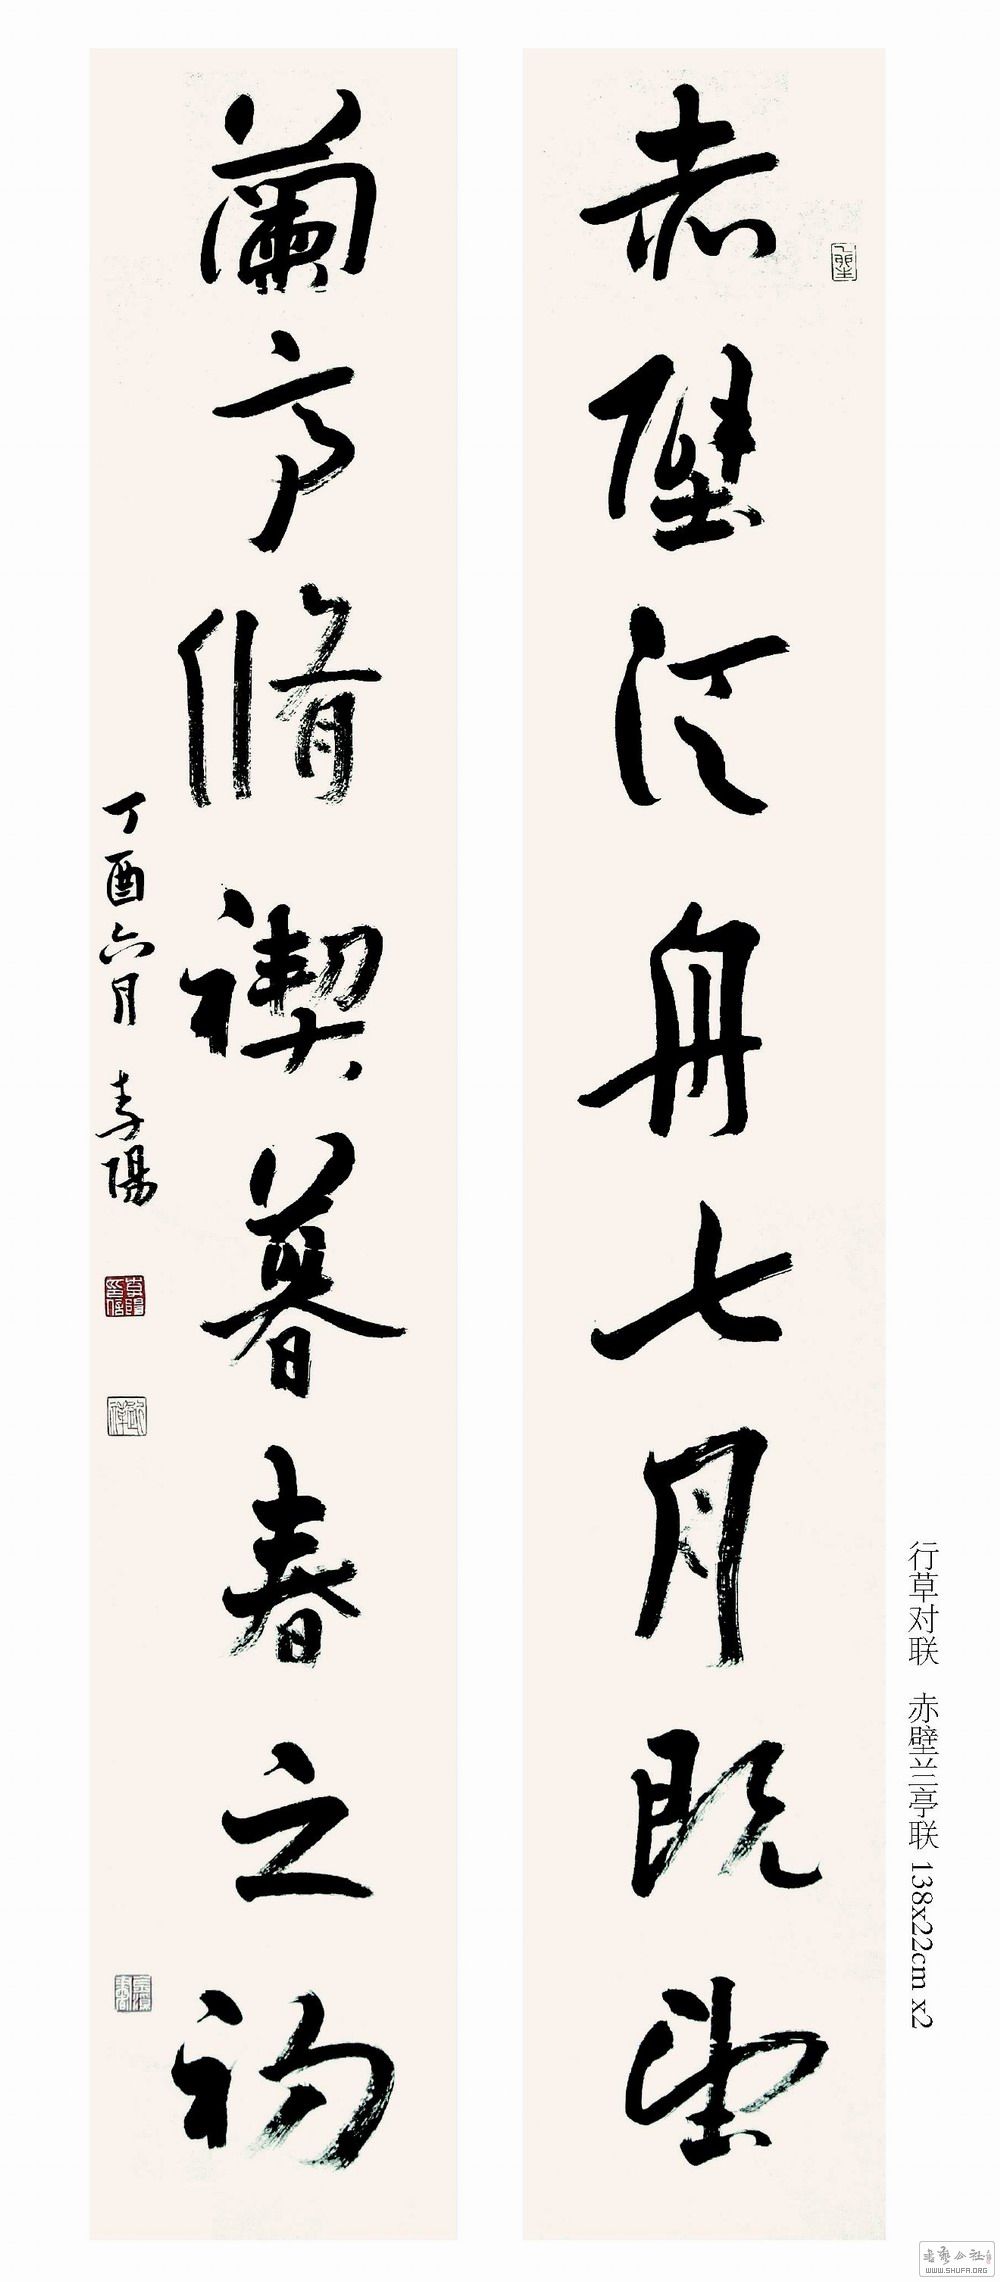 赤壁泛舟七月既望
蘭亭脩禊暮春之初
丁酉六月 李陽
行草对联 赤壁兰亭联 138x22cm x2
书艺公社
WWW.SHUFA.ORG